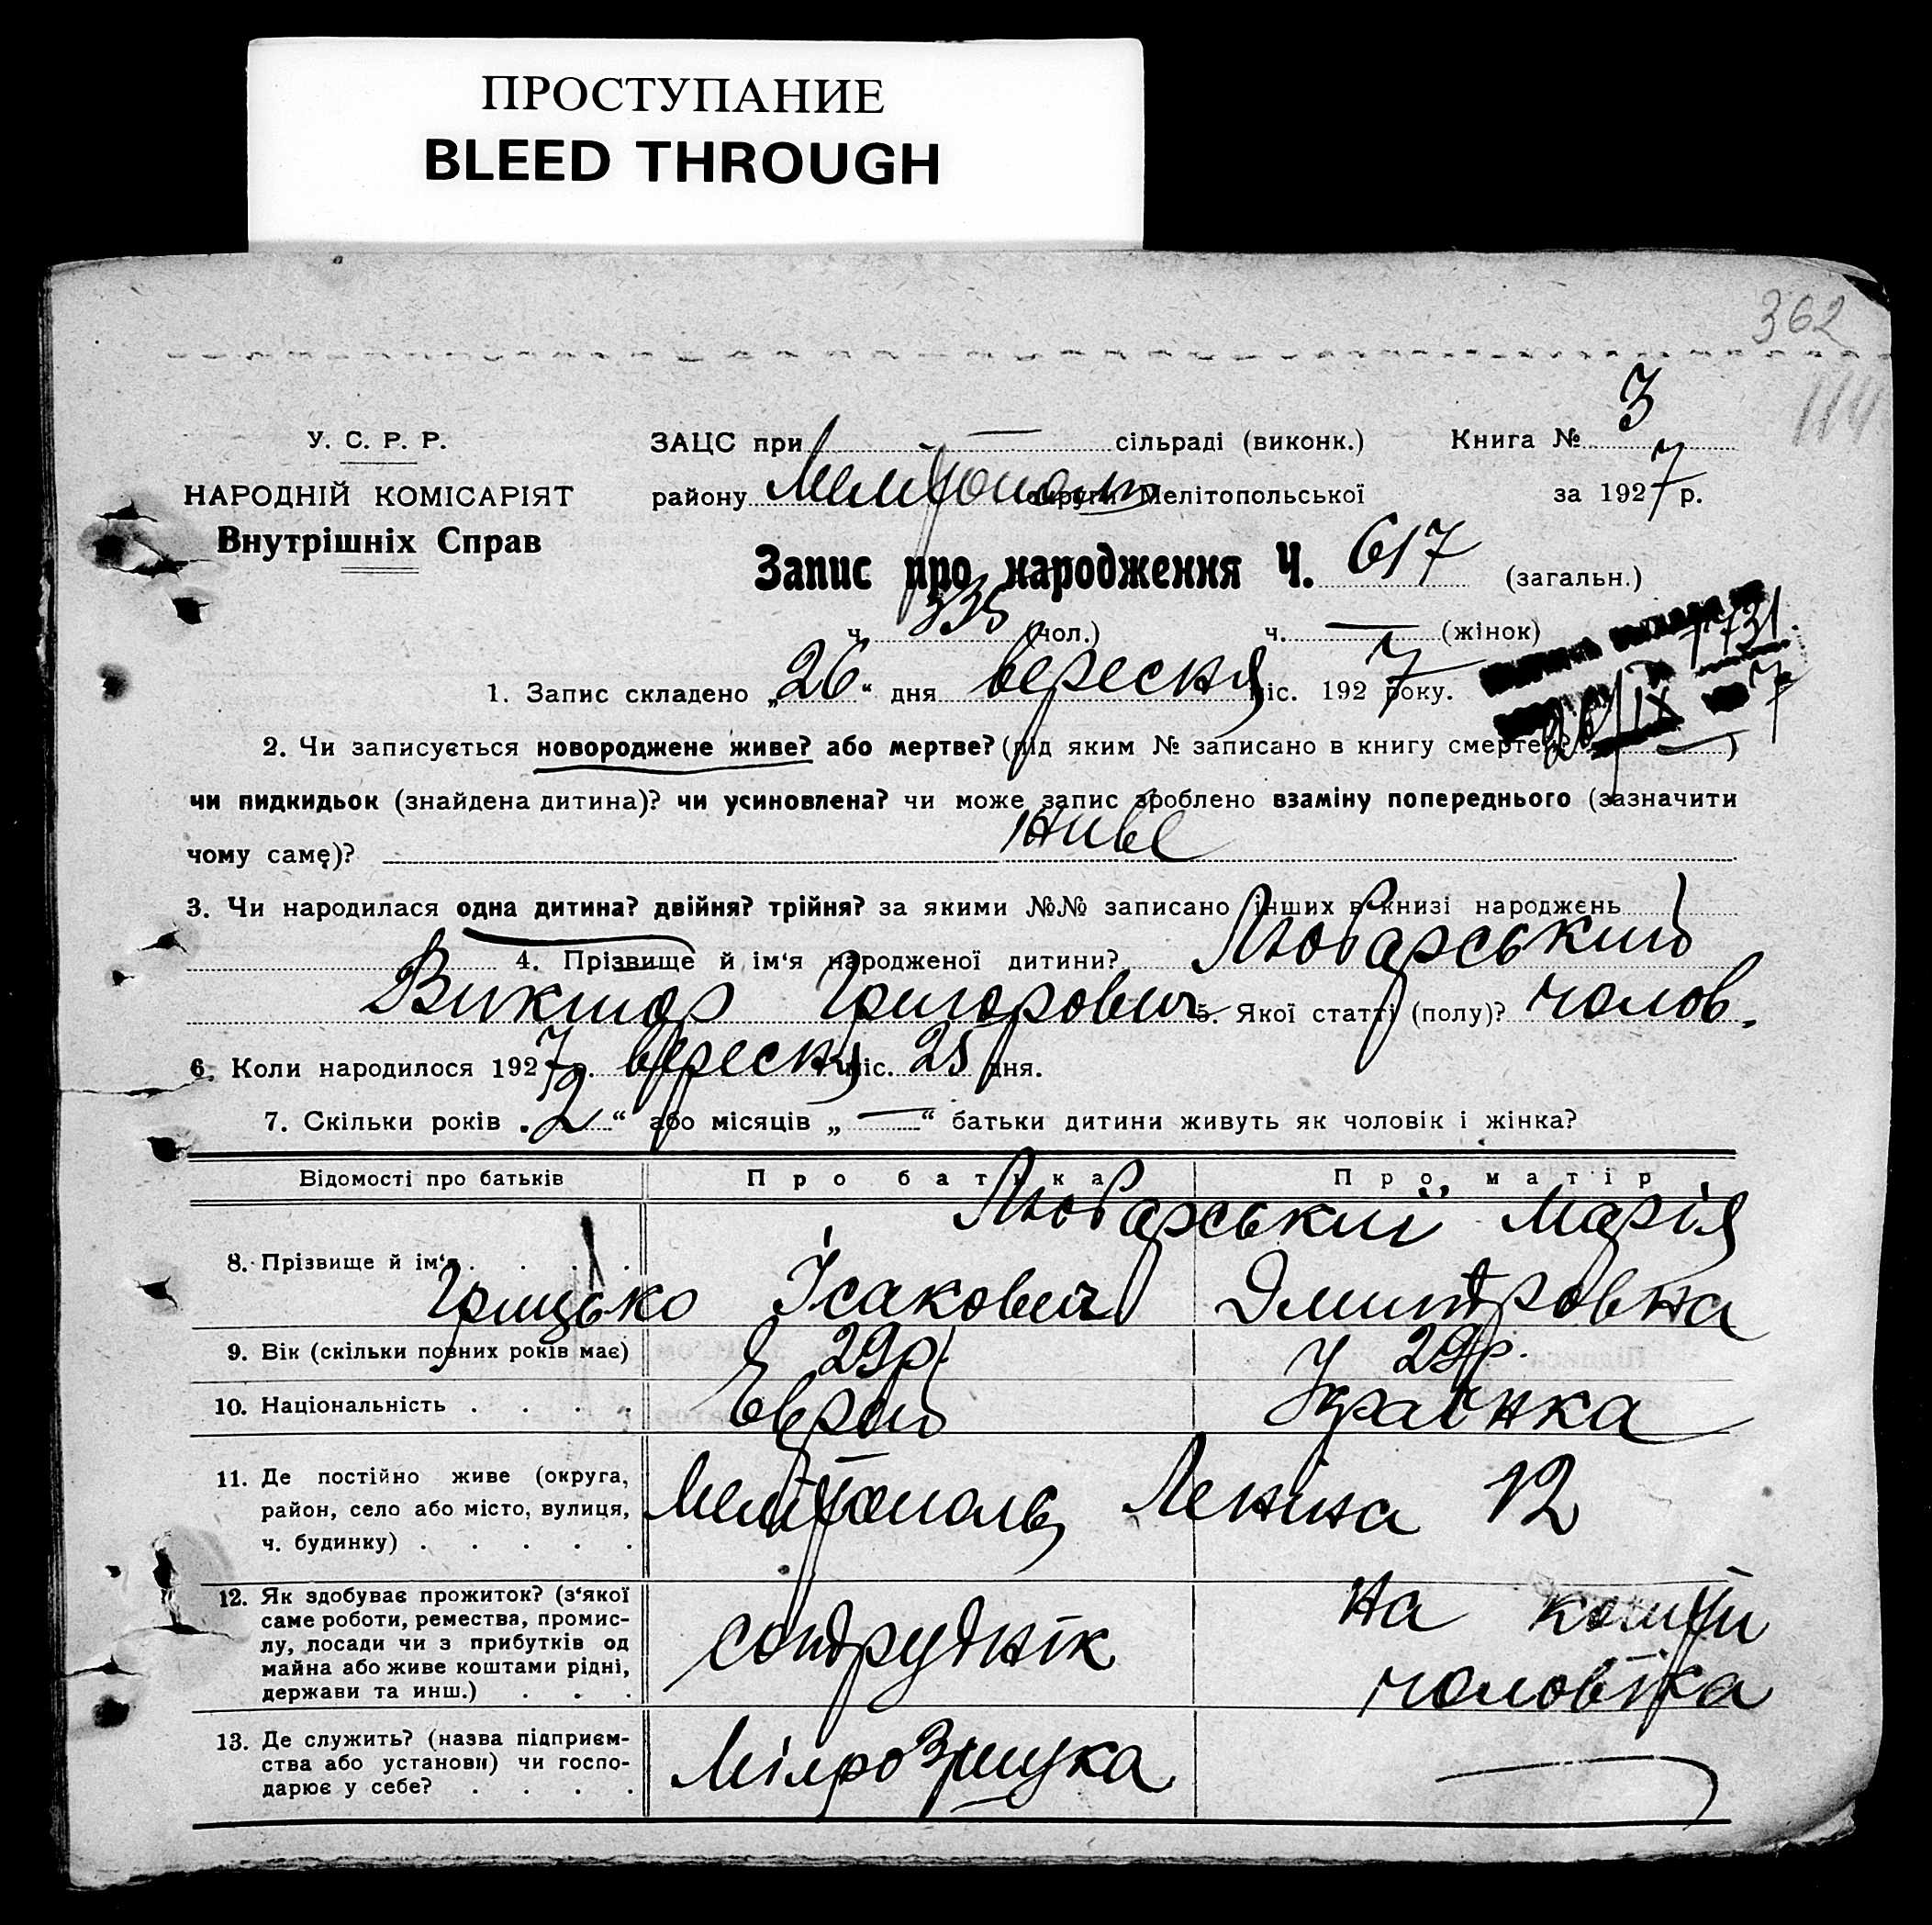 ПРОСТУПАНИЕ
BLEED THROUGH
362
114
У. С. Р. Р.
НАРОДНІЙ КОМІСАРІЯТ
Внутрішніх Справ
ЗАЦС при — сільраді (виконк.) Книга № 3
району Мелітополь округи Мелітопольської за 1927 р.
Запис про народження Ч. 617 (загальн.)
ч. 335 (чол.) ч. — (жінок)
1. Запис складено „26“ дня вересня міс. 1927 року.
2. Чи записується новороджене живе? або мертве? (під яким № записано в книгу смертей? — )
чи пидкидьок (знайдена дитина)? чи усиновлена? чи може запис зроблено взаміну попереднього (зазначити
чому саме)? живе
3. Чи народилася одна дитина? двійня? трійня? за якими №№ записано інших в книзі народжень
4. Прізвище й ім‘я народженої дитини? Любарський
Виктор Григорович 5. Якої статті (полу)? чолов.
6. Коли народилося 1927 р. вересня міс. 25 дня.
7. Скільки років „2“ або місяців „—“ батьки дитини живуть як чоловік і жінка?
Відомості про батьків Про батька Про матір
8. Прізвище й ім‘я . . . . Любарський Марія
Грицько Ісакович Дмитровна
9. Вік (скільки повних років має) 29 р. 29 р.
10. Національність . . . . Еврей Украінка
11. Де постійно живе (округа,
район, село або місто, вулиця,
ч. будинку) . . . . .
Мелітополь, Леніна 12
12. Як здобуває прожиток? (з‘якої
саме роботи, ремества, промис-
лу, посади чи з прибутків од
майна або живе коштами рідні,
держави та инш.) . . .
сотруднік
на кошти
чоловіка
13. Де служить? (назва підприєм-
ства або установи) чи госпо-
дарює у себе? . . . .